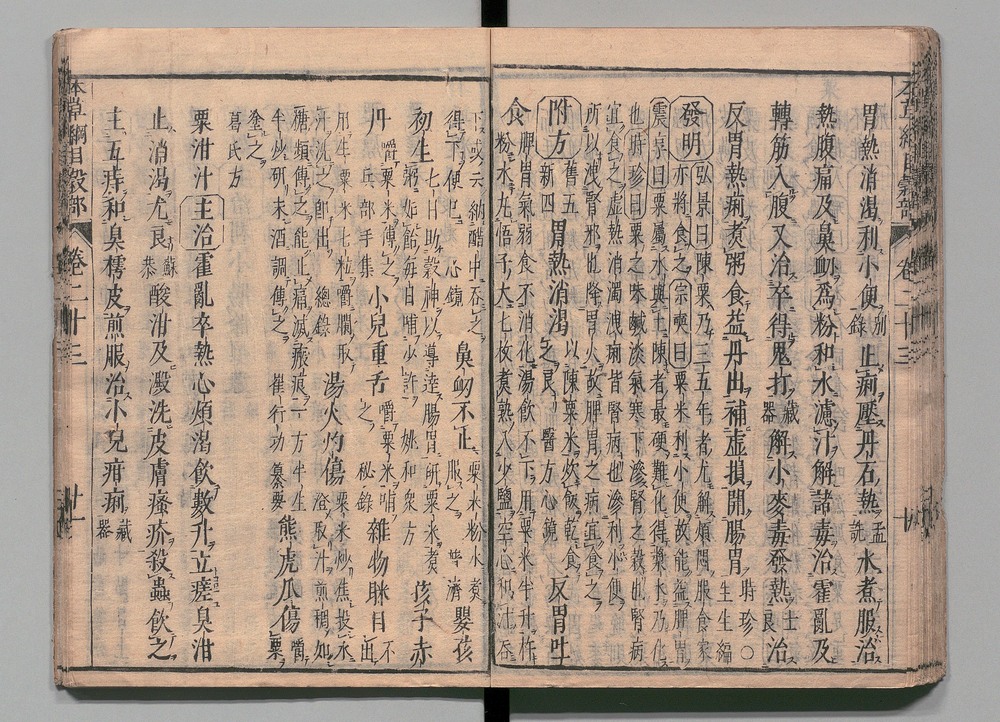 胃熱消渴利小便別錄止痢壓丹石熱孟詵水煮服治
熱腹痛及鼻衄為粉和水濾汁解諸毒治霍亂及
轉筋入腹又治卒得鬼打藏器解小麥毒發熱士良治
反胃熱痢煮粥食益丹田補虛損開腸胃時珍○生生編
發明弘景曰陳粟乃三五年者尤解煩悶服食家
亦將食之宗奭曰粟米利小便故能益脾胃
震亨曰粟屬水與土陳者最硬難化得漿水乃化
也時珍曰粟之味鹹淡氣寒下滲腎之穀也腎病
宜食之虛熱消渴洩痢皆腎病也滲利小便
所以洩腎邪也降胃火故脾胃之病宜食之
附方舊五新四胃熱消渴以陳粟米炊飯乾食之良醫方心鏡反胃吐
食脾胃氣弱食不消化湯飲不下用粟米半升杵
粉水丸梧子大七枚煮熟入少鹽空心和汁吞
下或云納醋中吞之
得下便已心鏡鼻衄不止粟米粉水煮服之普濟嬰孩
初生七日助穀神以導達腸胃研粟米煮粥如飴每日哺少許姚和眾方孩子赤
丹嚼粟米傅之兵部手集小兒重舌嚼粟米哺之秘錄雜物眯目不出
用生粟米七粒嚼爛取汁洗之即出總錄湯火灼傷粟米炒焦投水澄取汁煎稠如
糖頻傅之能止痛滅瘢痕一方半生半炒研末酒調傅之崔行功纂要熊虎爪傷嚼粟
塗之葛氏方
粟泔汁主治霍亂卒熱心煩渴飲數升立瘥臭泔
止消渴尤良蘇恭酸泔及澱洗皮膚瘙疥殺蟲飲之
主五痔和臭樗皮煎服治小兒疳痢藏器
本草綱目穀部 卷二十三 十
本草綱目穀部 卷二十三 十一